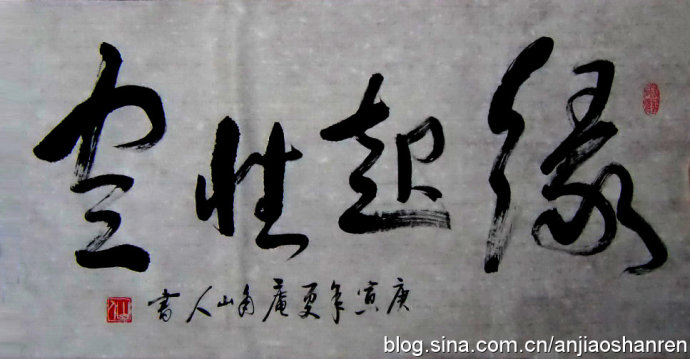 緣起性空
庚寅年夏庵角山人書
blog.sina.com.cn/anjiaoshanren